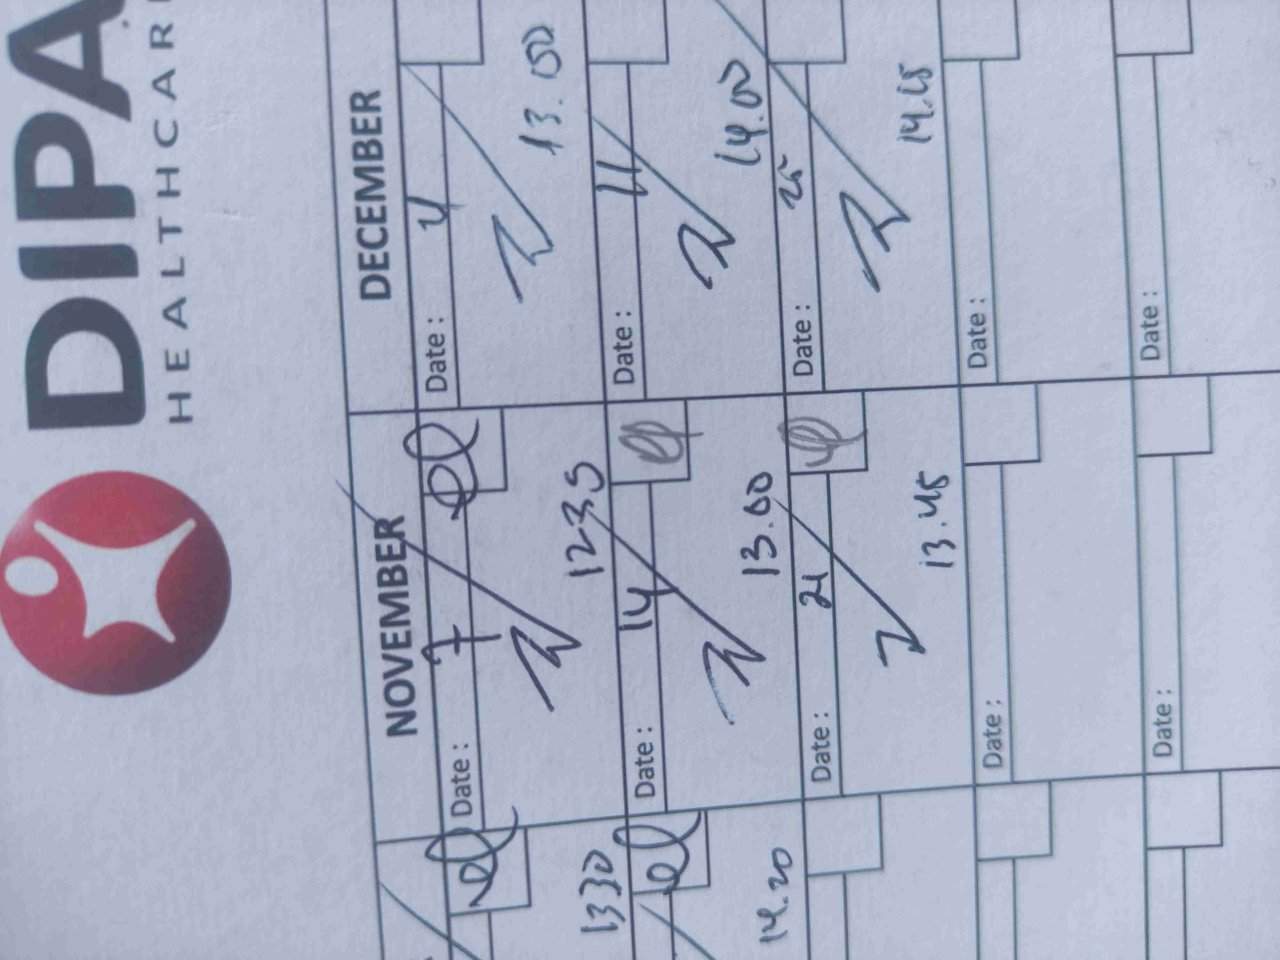 DIPA
HEALTHCAR
NOVEMBER DECEMBER
Date : 7 Date : 4
1330 1235 13.00
Date : 14 Date : 11
14.20 13.00 14.00
Date : 21 Date : 25
13.45
Date : Date :
Date : Date :